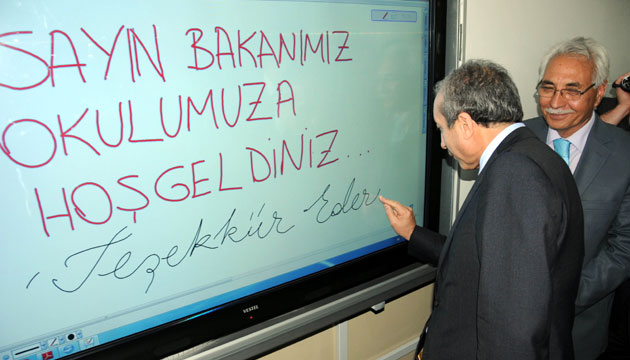 SAYIN BAKANIMIZ
OKULUMUZA
HOŞGELDİNİZ...
Teşekkür Eder
VESTEL